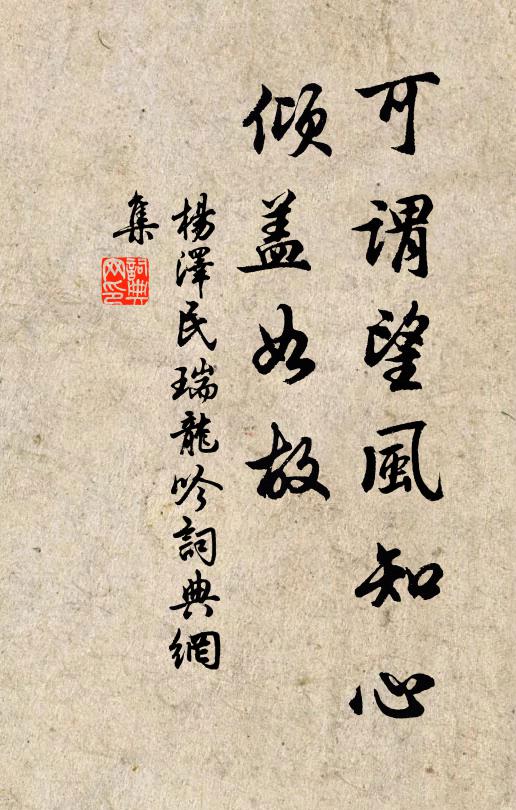 可謂望風知心
傾盖如故
楊澤民瑞龍吟詞典網
集
詞典網印